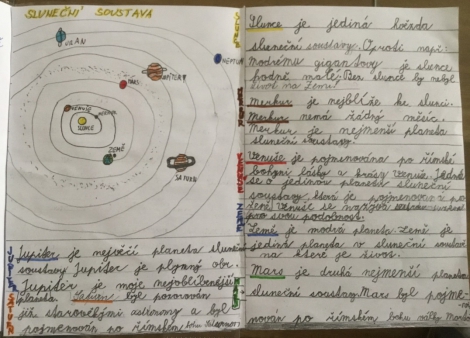 SLUNEČNÍ SOUSTAVA
URAN
NEPTUN
JUPITER
MARS
VENUŠE
MERKUR
SLUNCE
ZEMĚ
SATURN
JUPITER
SATURN
Jupiter je největší planeta sluneční
soustavy Jupiter je plynný obr.
Jupiter je moje nejoblíbenější
planeta. Saturn byl pozorován
již starověkými astronomy a byl
pojmenován po římském bohu
SLUNCE
MERKUR
VENUŠE
ZEMĚ
MARS
Slunce je jediná hvězda
sluneční soustavy. Oproti např.
modrému gigantovy je slunce
hodně malé. Bez slunce by nebyl
život na Zemi!
Merkur je nejblíže ke slunci.
Merkur nemá žádný měsíc.
Merkur je nejmenší planeta
sluneční soustavy.
Venuše je pojmenována po římské
bohyni lásky a krásy Venuše. Jedná
se o jedinou planetu sluneční
soustavy, která je pojmenovaná po
ženě. Venuše se nazývá
pro svou podobnost.
Země je modrá planeta. Země je
jediná planeta v sluneční soustavě
na které je život.
Mars je druhá nejmenší planeta
sluneční soustavy. Mars byl pojme-
nován po římském bohu války Marsovi